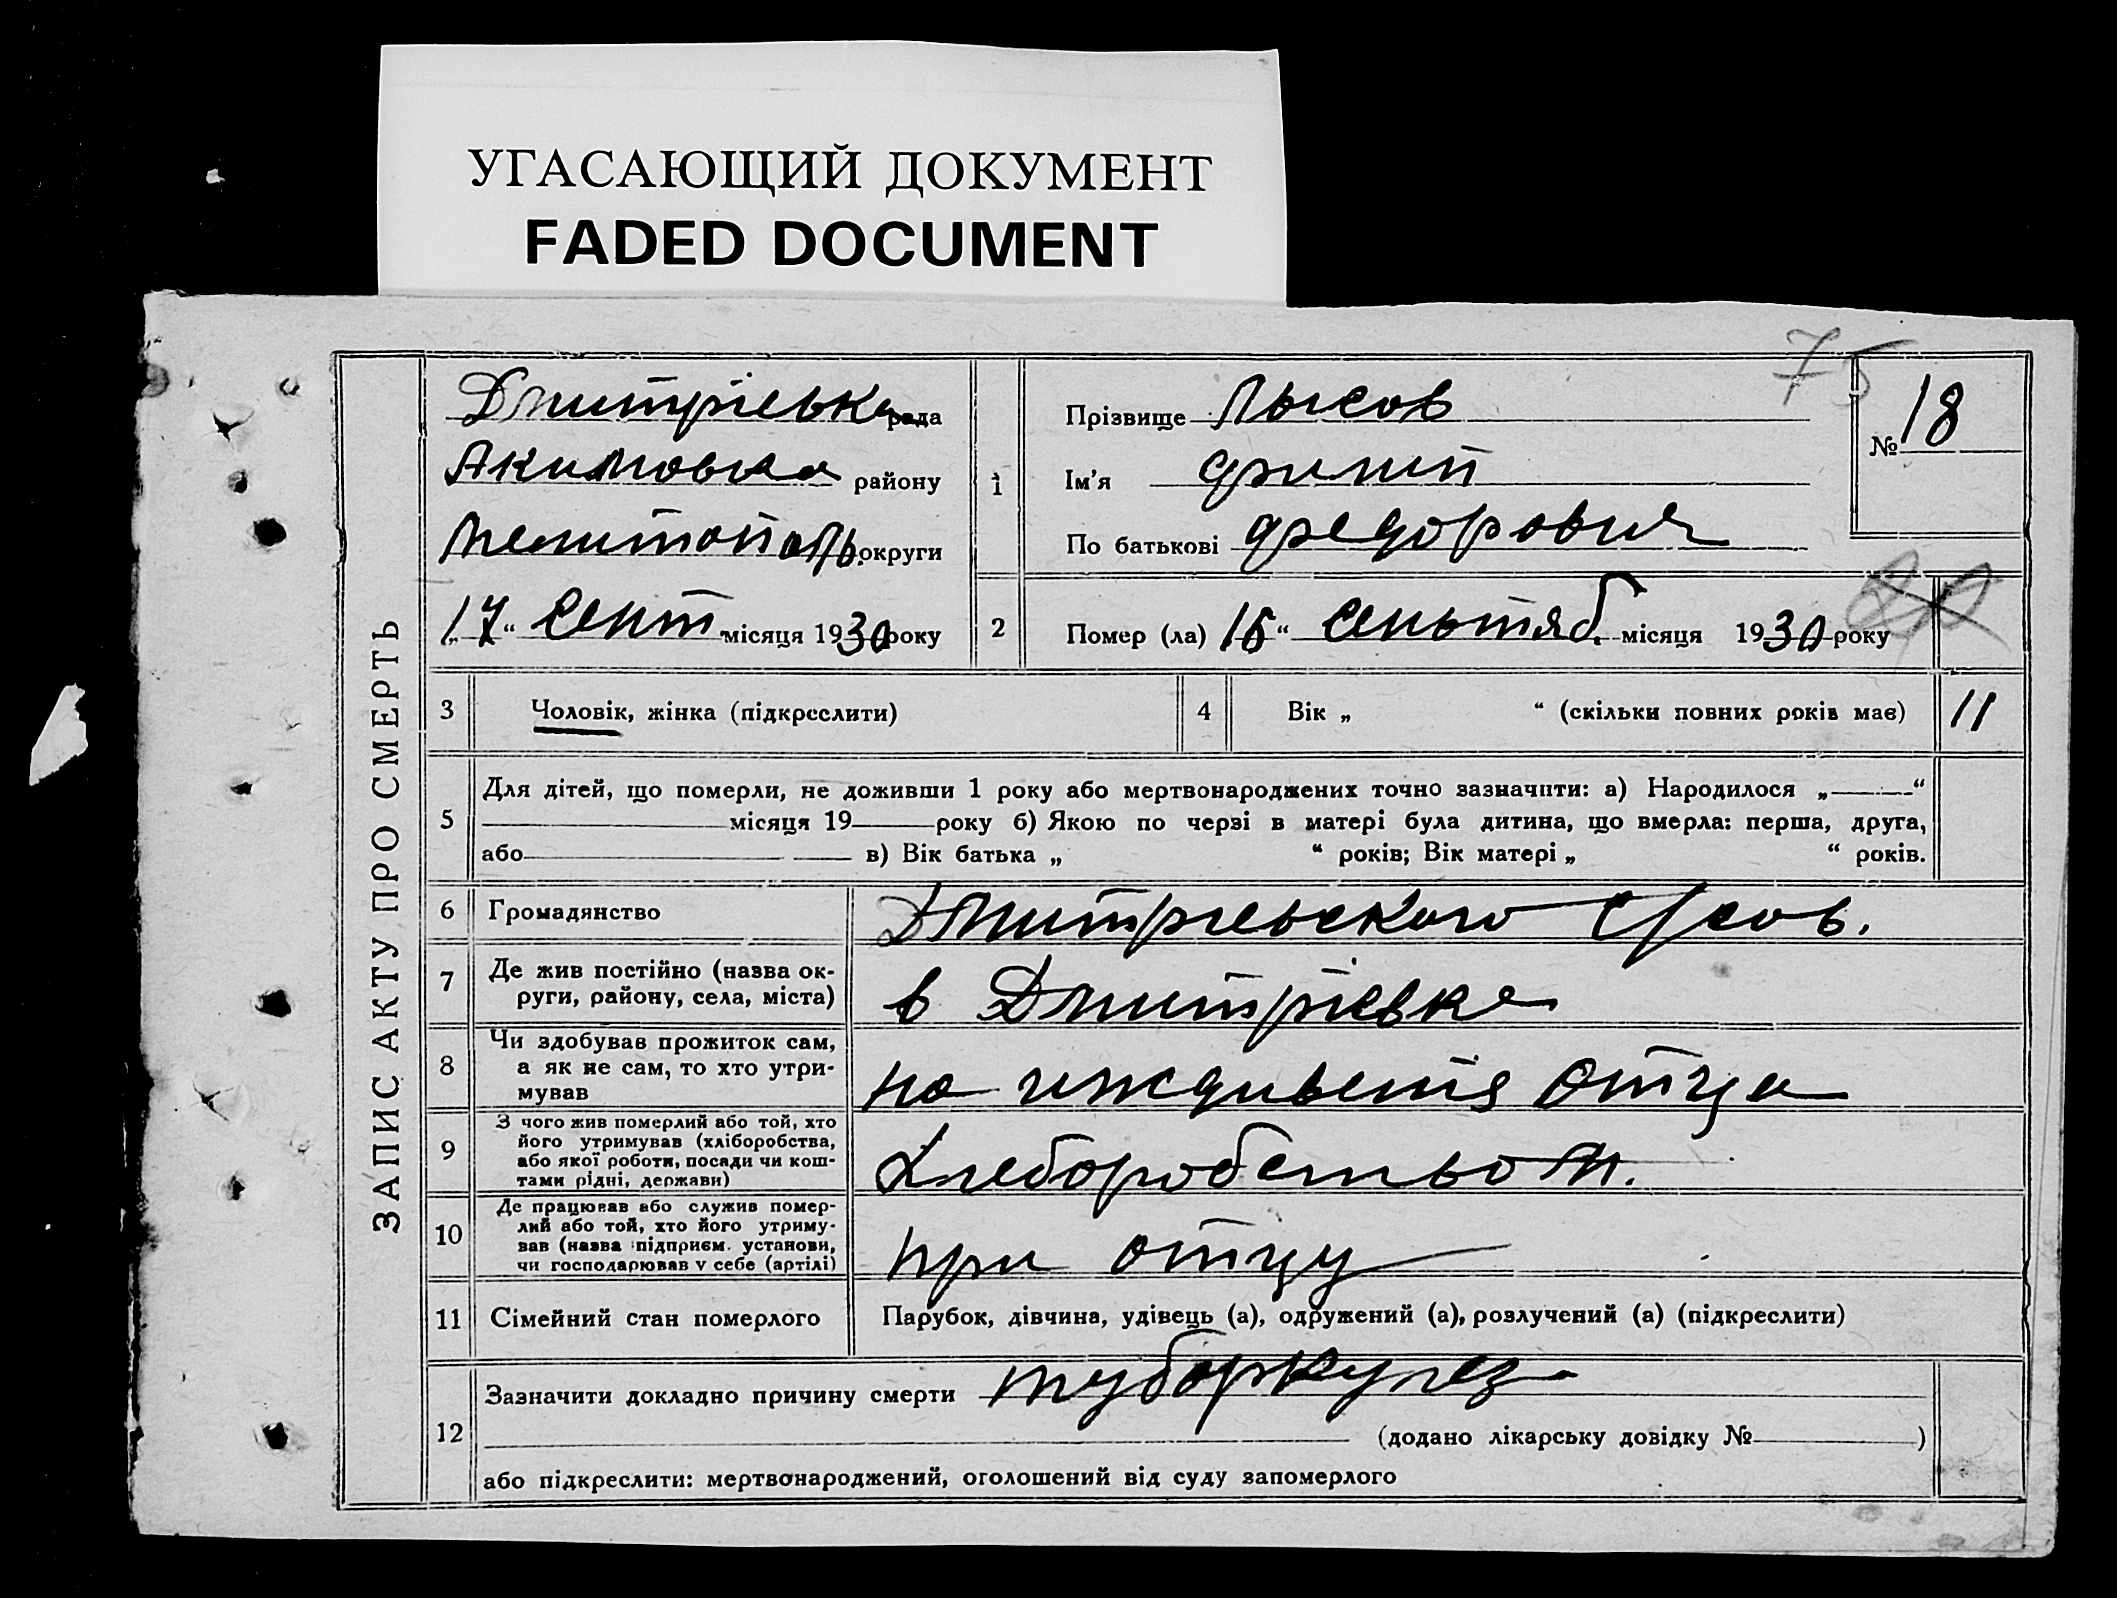 УГАСАЮЩИЙ ДОКУМЕНТ
FADED DOCUMENT
75
ЗАПИС АКТУ ПРО СМЕРТЬ
Дмитріевька рада
Акимовка району
Мелитополь. округи
„17“ Сент місяця 1930 року
1
Прізвище Лысов
Ім'я Филип
По батькові Федорович
№ 18
2 Помер (ла) 15“ Сеньтяб. місяця 1930 року
3 Чоловік, жінка (підкреслити)
4 Вік „ “ (скільки повних років має) 11
5 Для дітей, що померли, не доживши 1 року або мертвонароджених точно зазначити: а) Народилося „ “
місяця 19 року б) Якою по черзі в матері була дитина, що вмерла: перша, друга,
або в) Вік батька „ “ років; Вік матері „ “ років.
6 Громадянство Дмитриевского с/сов.
7 Де жив постійно (назва ок-
руги, району, села, міста) в Дмитріевке
8 Чи здобував прожиток сам,
а як не сам, то хто утри-
мував на иждивенія отца
9 З чого жив померлий або той, хто
його утримував (хліборобства,
або якої роботи, посади чи кош-
тами рідні, держави) Хлеборобством.
10 Де працював або служив помер-
лий або той, хто його утриму-
вав (назва підприєм. установи,
чи господарював у себе (артілі) при отцу
11 Сімейний стан померлого Парубок, дівчина, удівець (а), одружений (а), розлучений (а) (підкреслити)
12 Зазначити докладно причину смерти туборкулез
(додано лікарську довідку № )
або підкреслити: мертвонароджений, оголошений від суду запомерлого